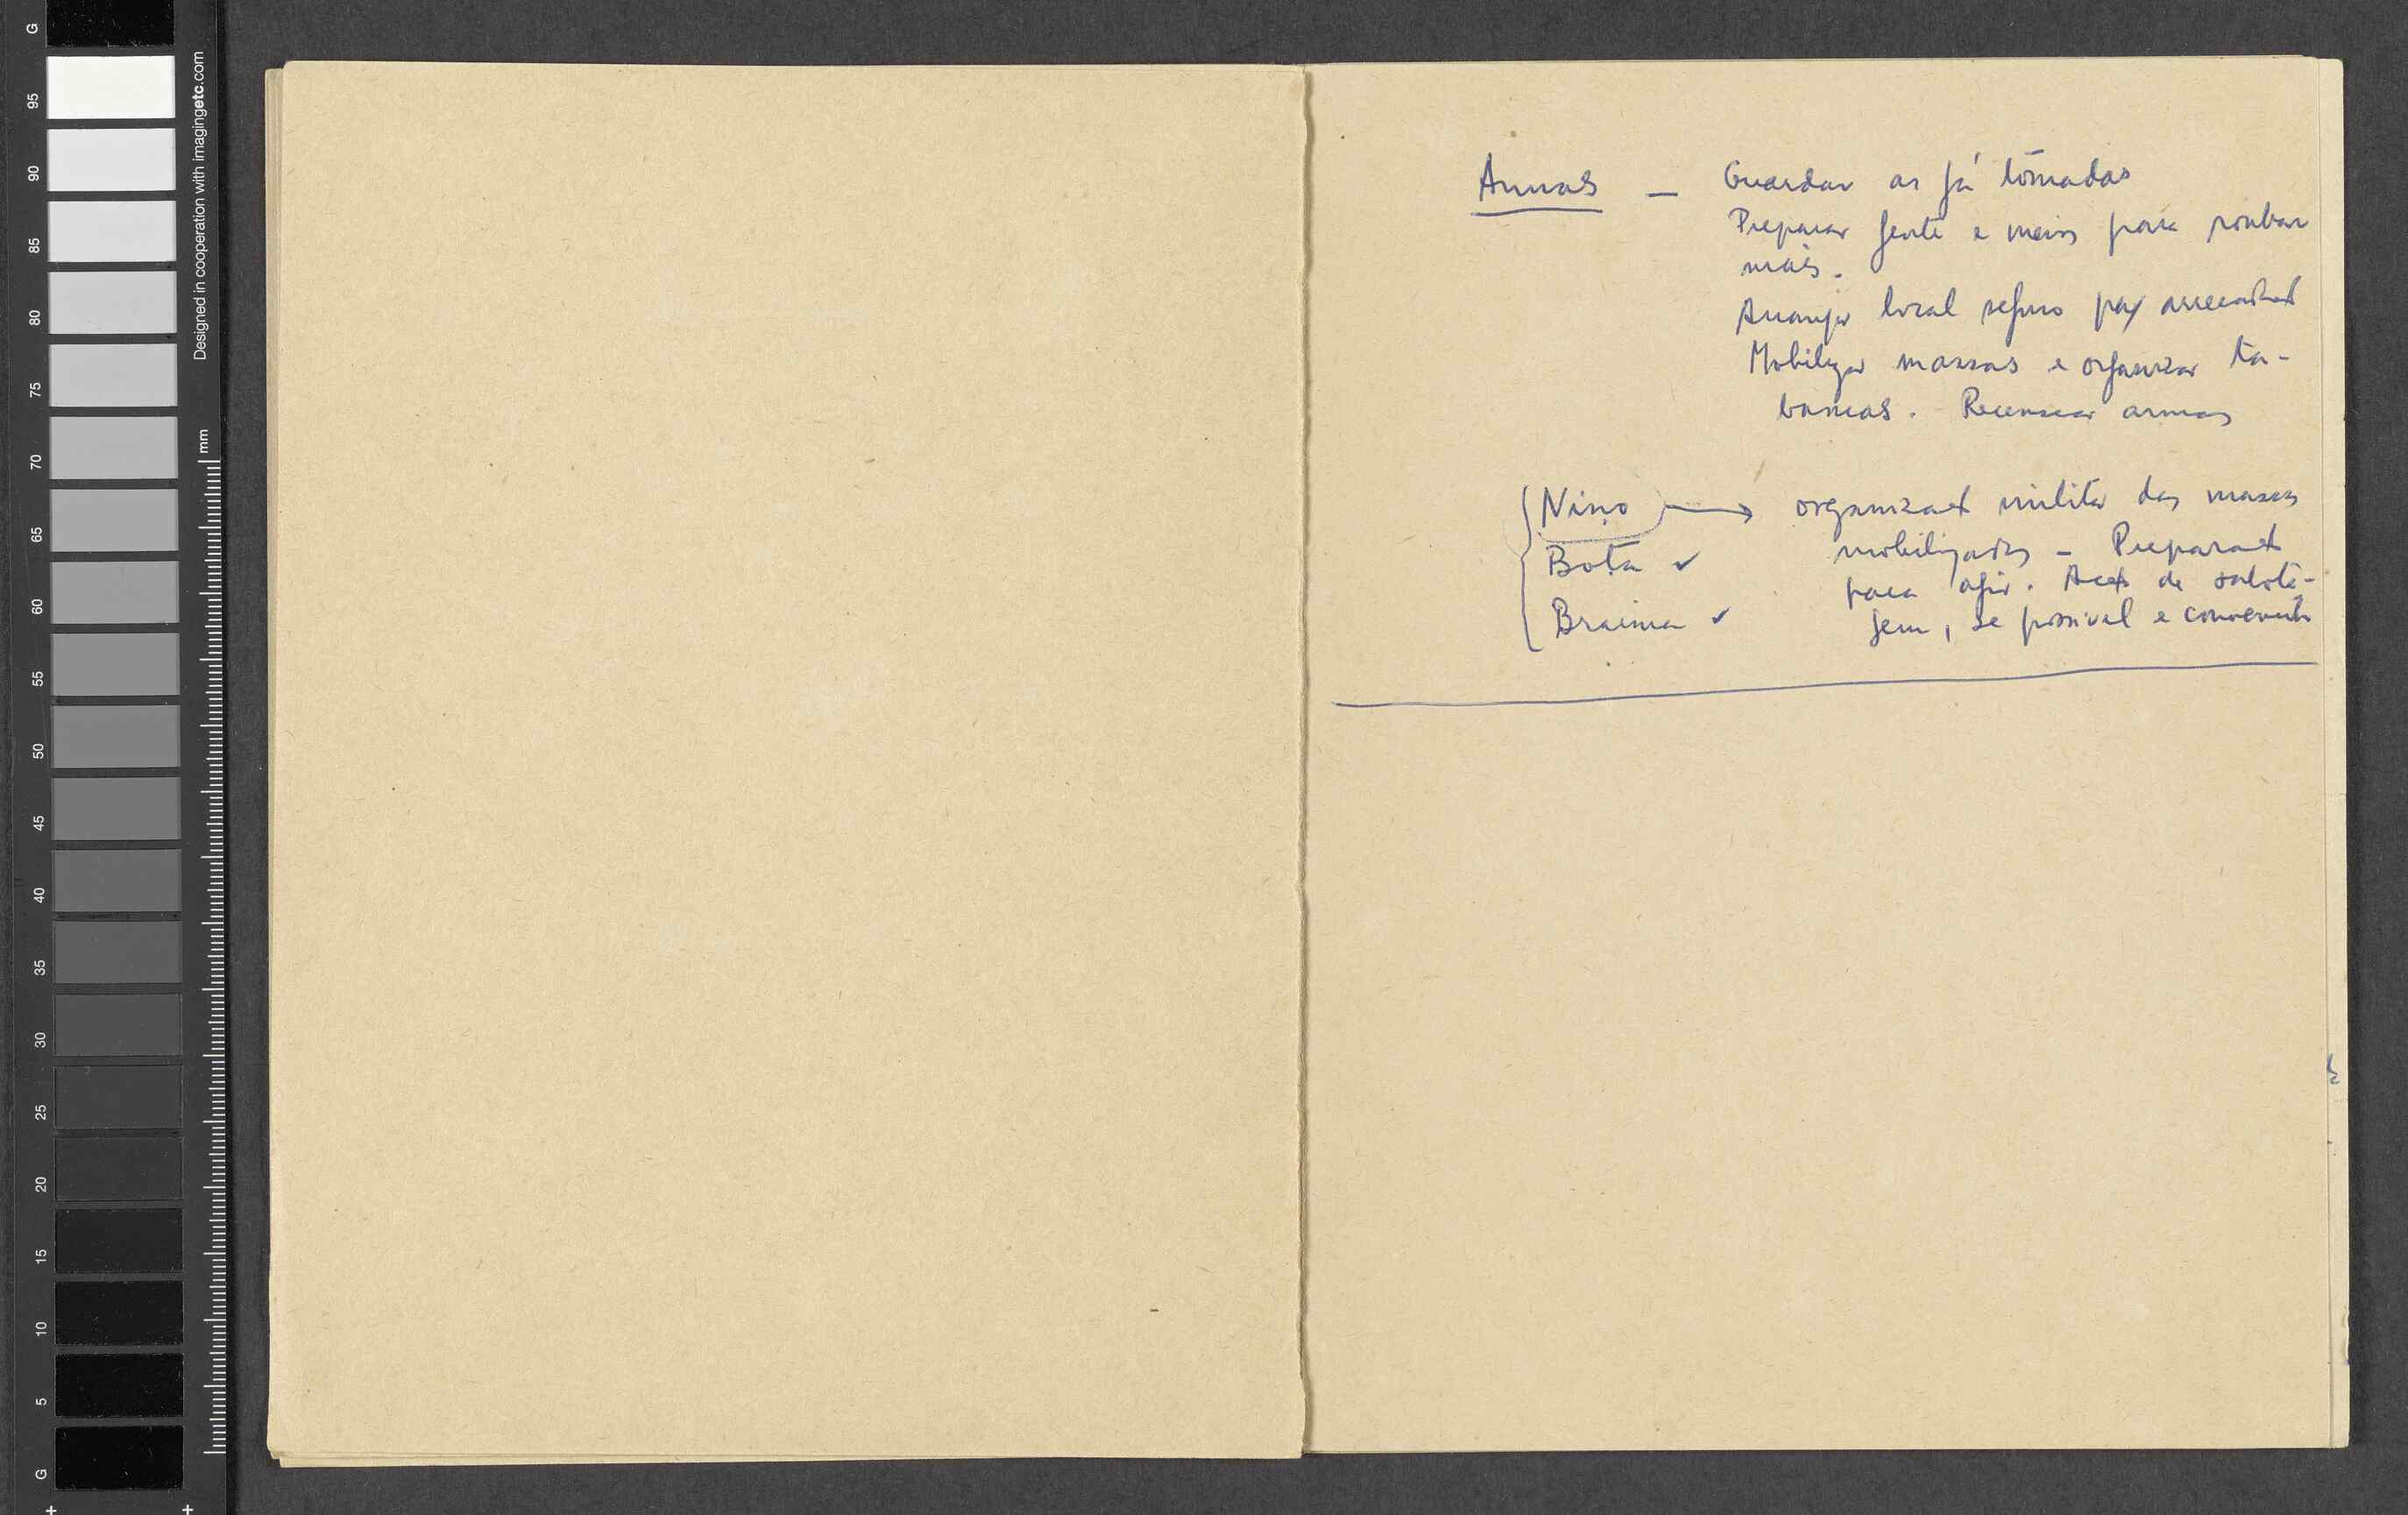 Armas — Guardar as já tomadas
Preparar gente e meios para roubar
mais.
Arranjar local seguro
Mobilizar massas e organizar ta-
bancas. Recensear armas
Nino → militar das massas
Bota ✓ mobilizadas –
para agir. de sabota-
Braima ✓ gem, se possível e conveniente
G
95
90
85
80
75
70
65
60
55
50
45
40
35
30
25
20
15
10
5
G
mm
Designed in cooperation with imagingetc.com